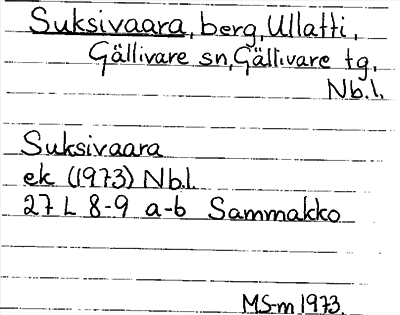 Suksivaara, berg, Ullatti,
Gällivare sn, Gällivare tg,
Nb.l.
Suksivaara
ek (1973) Nbl.
27 L 8-9 a-b Sammakko
MS-m 1973.